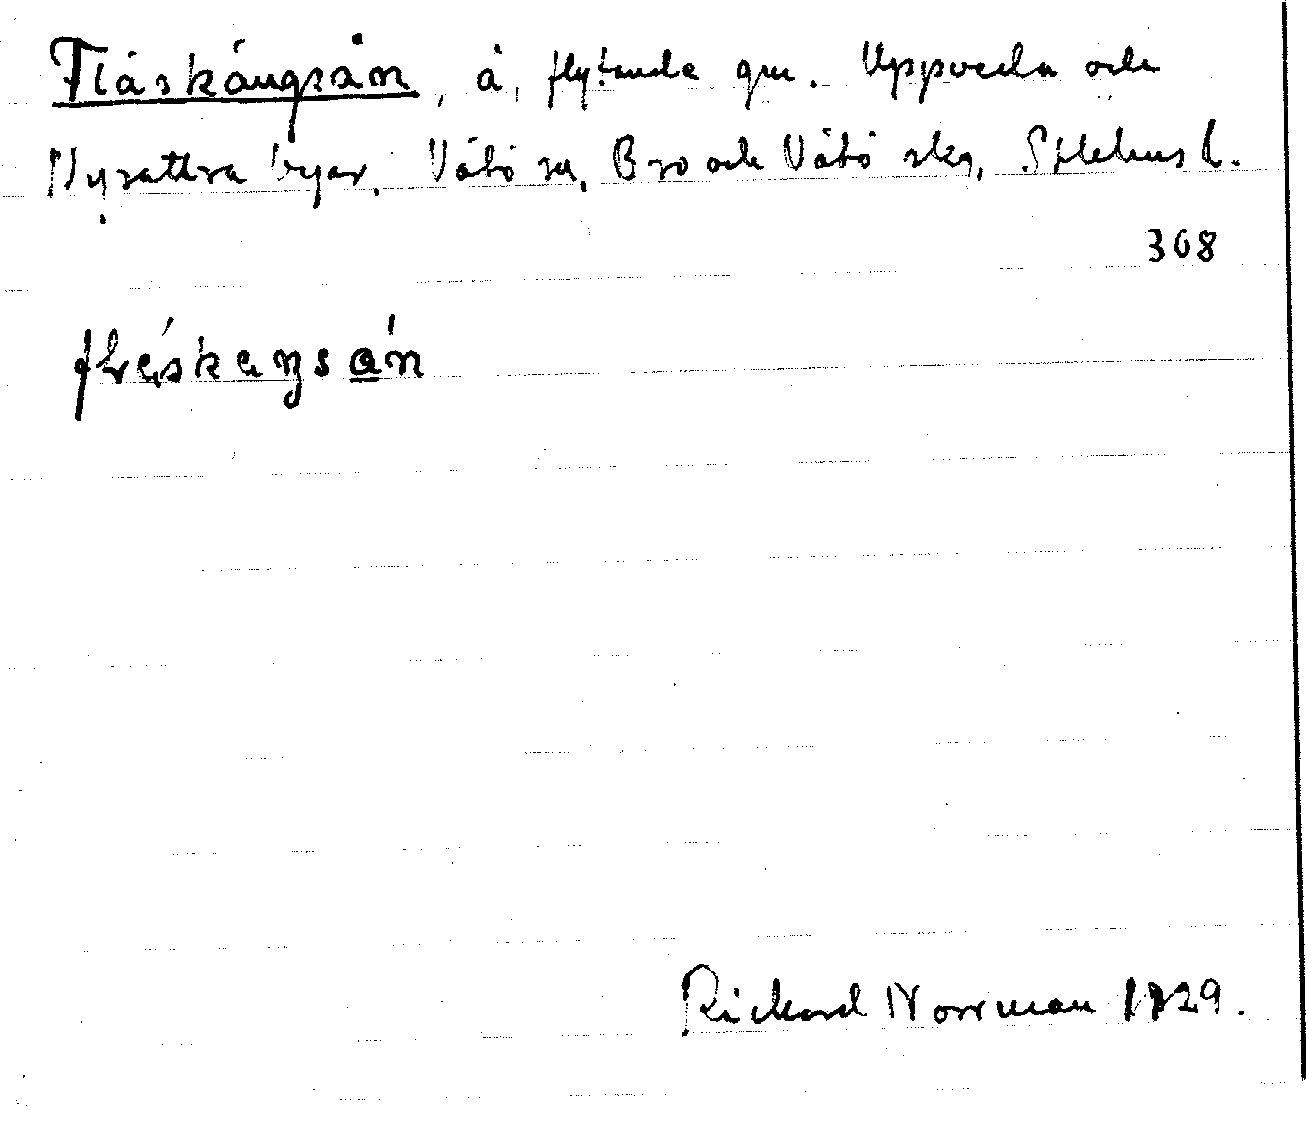 Fläskängsån, å, flytande gm. Uppveda och
Nysättra byar, Vätö sn, Bro och Vätö skg, Sthlms l.
308
Rickard Norrman 1929.